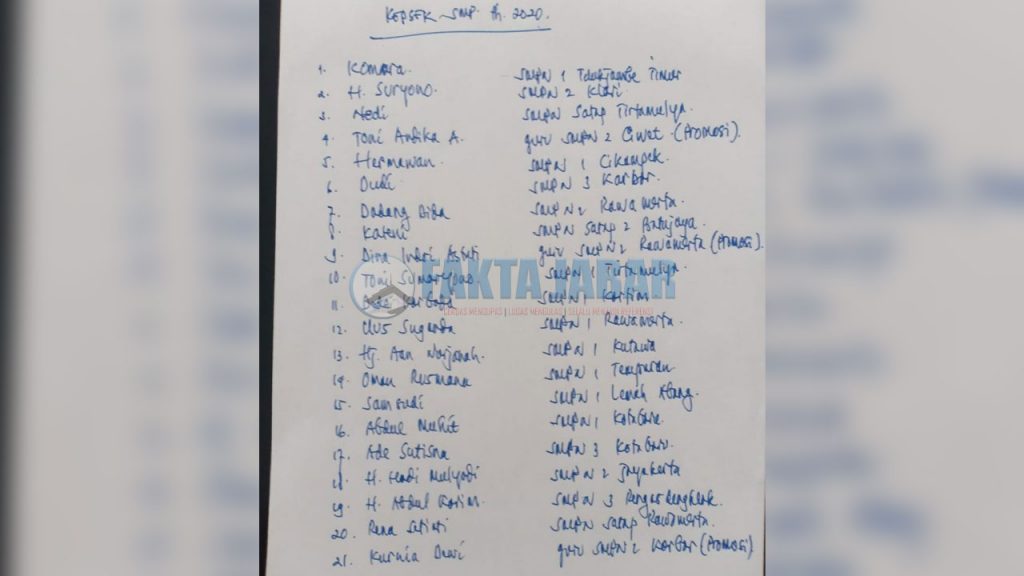 KEPSEK SMP. th. 2020.
1. Komara. SMPN 1 Telukjambe Timur
2. H. Suryono. SMPN 2 Klari.
3. Nedi SMPN Satap Tirtamulya.
4. Toni Andika A. guru SMPN 2 Ciwat (Promosi).
5. Hermawan. SMPN 1 Cikampek.
6. Dudi SMPN 3 Karbar.
7. Dadang SMPN 2 Rawamerta.
8. Kateni SMPN Satap 2
9. Dina Indri Astuti guru SMPN 2 Rawamerta (Promosi).
10. Toni Sumaryono SMPN 1 Tirtamulya.
FAKTA JABAR
11. SMPN 1 Kartim
CERDAS MENGUPAS | LUGAS MENGULAS | SELALU MENJADI REFERENSI
12. Uus Suganda SMPN 1 Rawamerta.
13. Hj. Aan Nurjanah. SMPN 1 Kutawa
14. Oman Rusmana SMPN 1 Tempuran.
15. Samsudi SMPN 1 Lemah Abang.
16. Abdul Muhit SMPN 1 Kotabaru.
17. Ade Sutisna SMPN 3 Kotabaru.
18. H. Hendi Mulyadi SMPN 2 Jayakerta
19. H. Abdul Karim. SMPN 3 Rengasdengklok.
20. Rana SMPN Satap Rawamerta.
21. Kurnia Dewi guru SMPN 2 Karbar (Promosi)